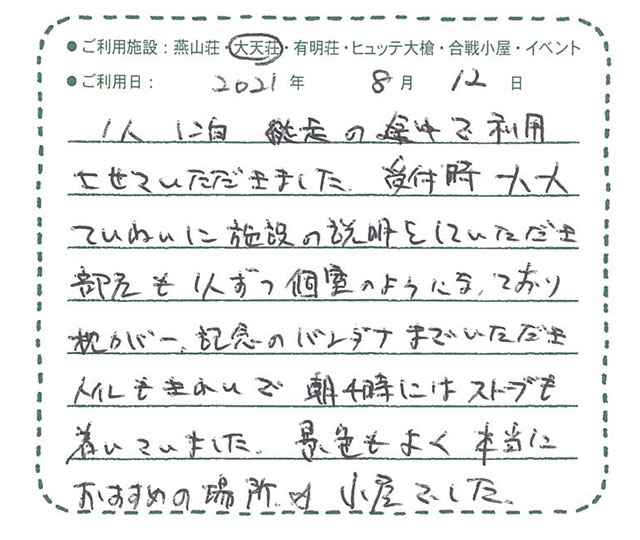 ●ご利用施設：燕山荘・大天荘・有明荘・ヒュッテ大槍・合戦小屋・イベント
●ご利用日： 2021年 8月 12日
1人 に白 縦走の途中で利用
させていただきました。受付時 一人一人
ていねいに施設の説明をしていただき
部屋も 1人ずつ個室のようになっており
枕カバー、記念のバンダナまでいただき
トイレもきれいで 朝4時にはストーブも
着いていました。景色もよく 本当に
おすすめの場所 小屋でした。